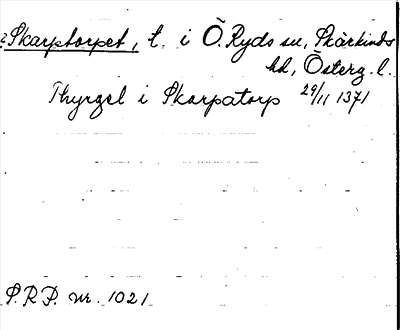 ? Skarptorpet, t. i Ö. Ryds sn, Skärkinds
hd, Österg. l.
Thyrgel i Skarpatorp 29/11 1371
S.R.P. nr. 1021